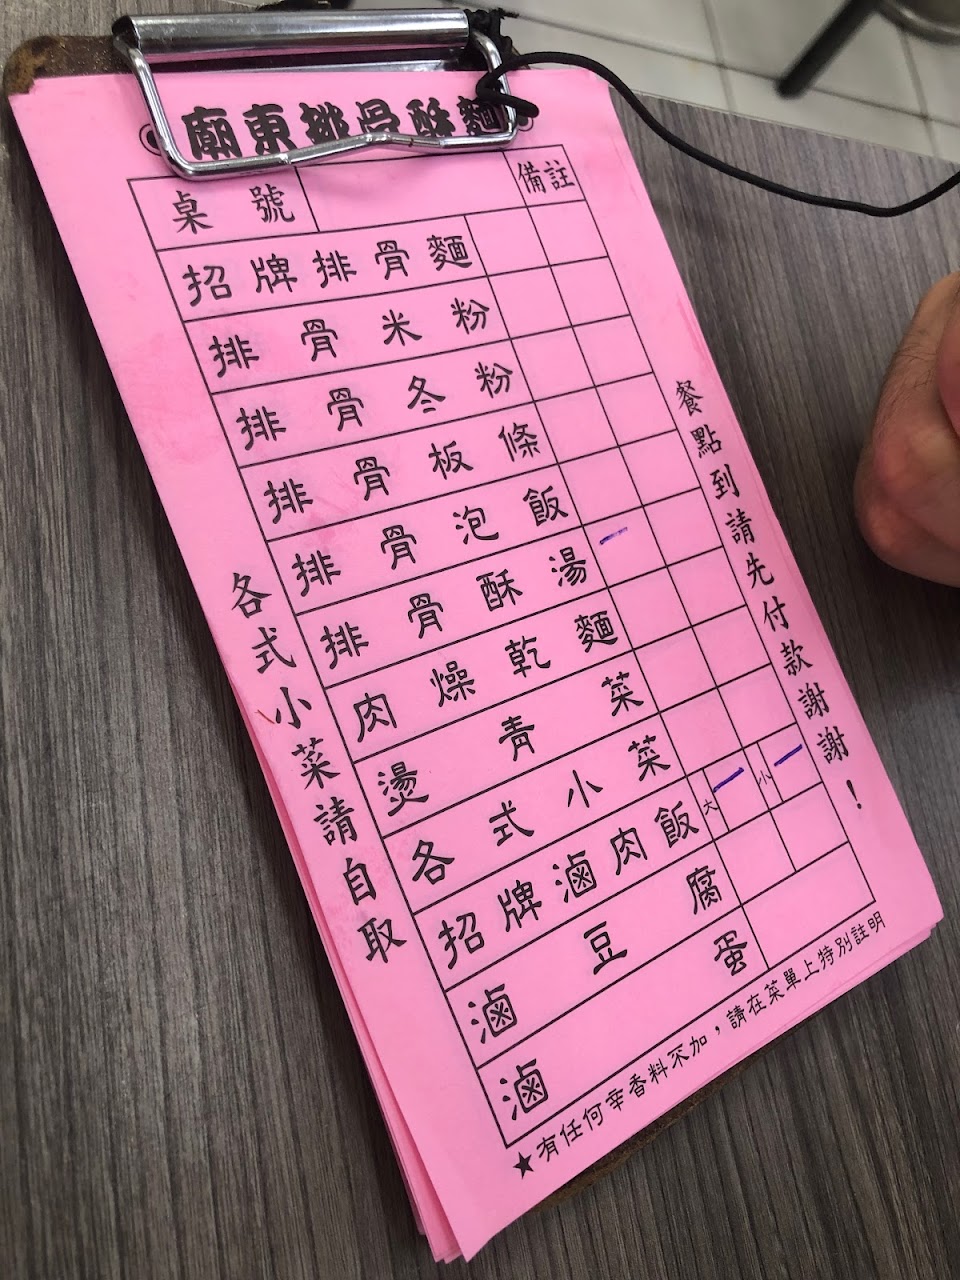 廟東排骨酥麵
桌號 備註
招牌排骨麵
排骨米粉
排骨冬粉
排骨板條
排骨泡飯
排骨酥湯 一
肉燥乾麵
燙青菜
各式小菜
招牌滷肉飯 大 一 小 一
滷豆腐
滷蛋
各式小菜請自取
餐點到請先付款謝謝！
★有任何辛香料不加，請在菜單上特別註明